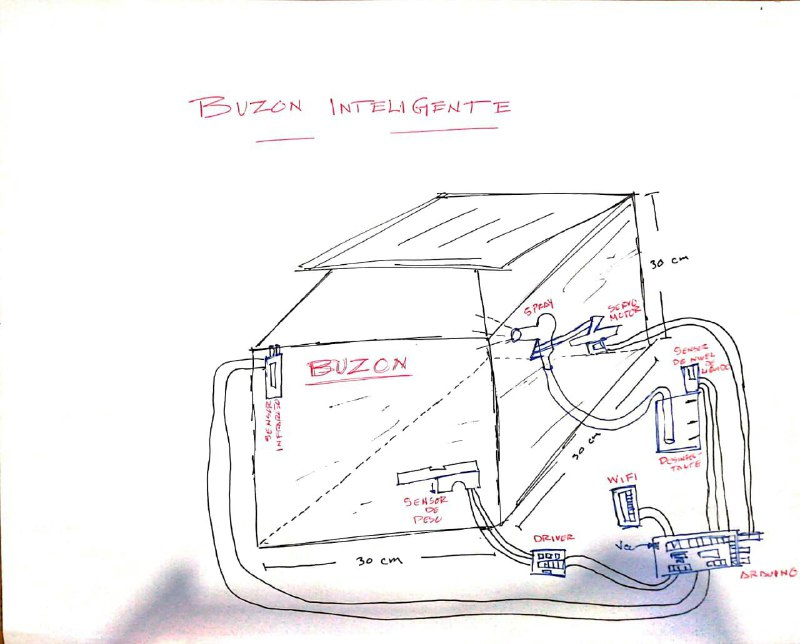 BUZON INTELIGENTE
30 cm
SPRAY
SERVO
MOTOR
SENSOR
DE NIVEL
DE
LIQUIDO
BUZON
SENSOR
INFRAROJO
30 cm
DESINFEC-
TANTE
SENSOR
DE
PESO
WIFI
DRIVER
Vcc
ARDUINO
30 cm